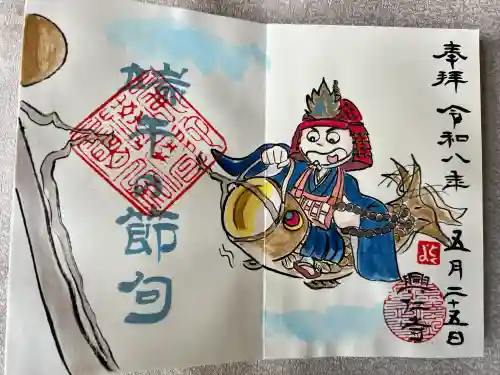 奉拝 令和八年 五月二十五日
端午の節句